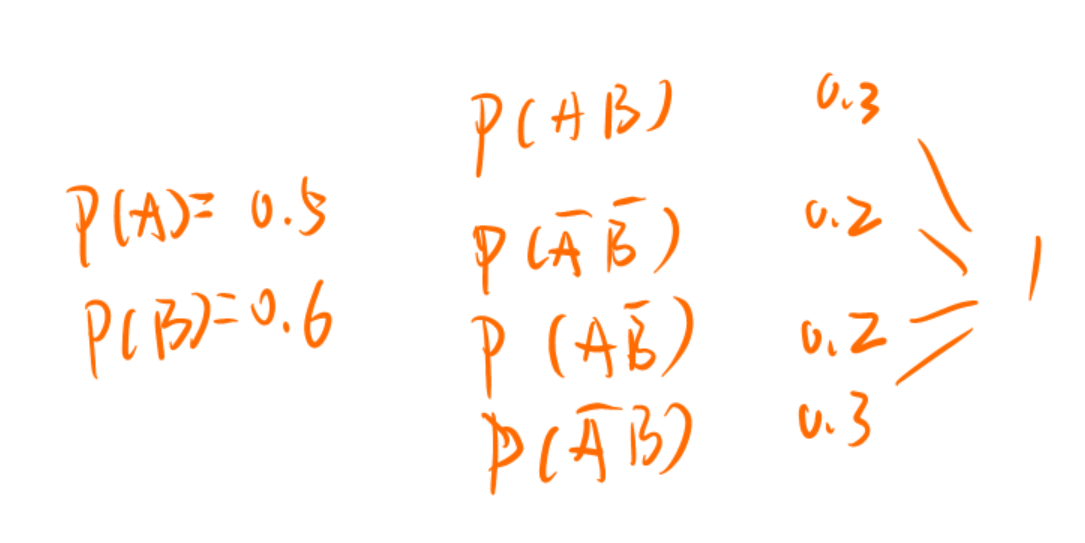 P(A)= 0.5
P(B)=0.6
P(AB) 0.3
P(A̅ B̅) 0.2
P(AB̅) 0.2
P(A̅B) 0.3
1